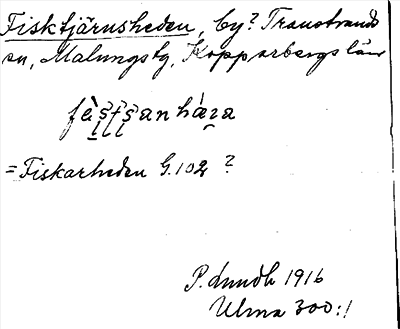 Fisktjärnsheden, by? Transtrands
sn, Malungs tg, Kopparbergs län
= Fiskarheden G. 102 ?
P. Lundh 1916
Ulma 300:1